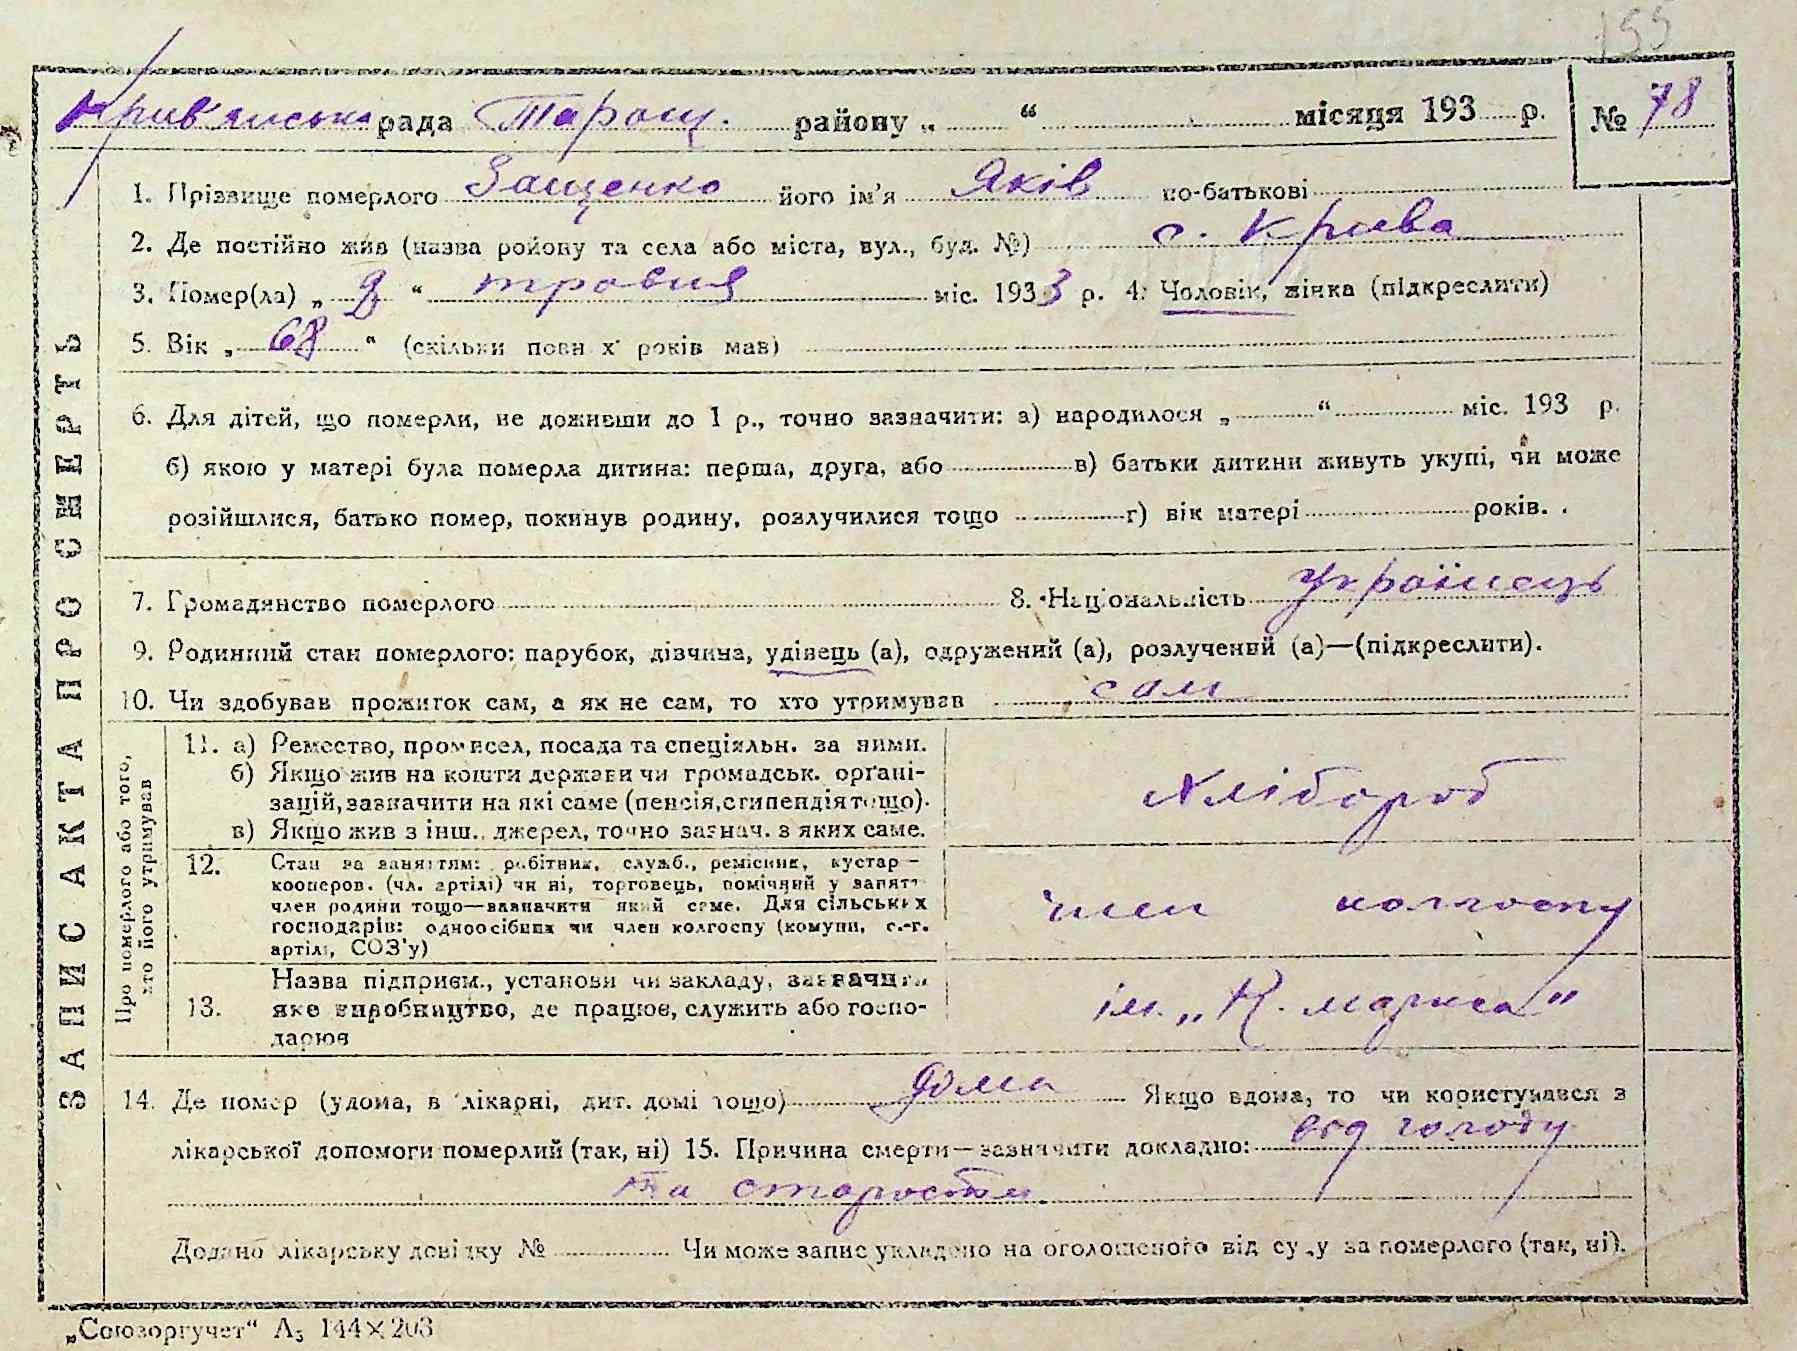 155
Крив'янська рада Таращ. району „ “ місяця 193 р. № 78
1. Прізвище померлого Защенко його ім'я Яків по-батькові
2. Де постійно жив (назва району та села або міста, вул., буд. №) с. Крива
3. Помер(ла) „ “ травня міс. 1933 р. 4. Чоловік, жінка (підкреслити)
5. Вік „ 68 “ (скільки повних років мав)
6. Для дітей, що померли, не доживши до 1 р., точно зазначити: а) народилося „ “ міс. 193 р.
б) якою у матері була померла дитина: перша, друга, або в) батьки дитини живуть укупі, чи може
розійшлися, батько помер, покинув родину, розлучилися тощо г) вік матері років.
7. Громадянство померлого 8. Національність Українець
9. Родинний стан померлого: парубок, дівчина, удівець (а), одружений (а), розлучений (а)—(підкреслити).
10. Чи здобував прожиток сам, а як не сам, то хто утримував сам
ЗАПИС АКТА ПРО СМЕРТЬ
Про померлого або того,
хто його утримував
11. а) Ремество, промисел, посада та спеціяльн. за ними.
б) Якщо жив на кошти держави чи громадськ. органі-
зацій, зазначити на які саме (пенсія, стипендія тощо).
в) Якщо жив з інш. джерел, точно зазнач. з яких саме.
Хлібороб
12. Стан за заняттям: робітник, служб., ремісник, кустар—
кооперов. (чл. артілі) чи ні, торговець, помічний у занятт
член родини тощо—зазначити який саме. Для сільських
господарів: одноосібник чи член колгоспу (комуни, с.-г.
артілі, СОЗ'у)
член колгоспу
13. Назва підприєм., установи чи закладу, зазначити
яке виробництво, де працює, служить або госпо-
дарює
ім. „К. маркса"
14. Де помер (удома, в лікарні, дит. домі тощо) дома Якщо вдома, то чи користувався з
лікарської допомоги померлий (так, ні) 15. Причина смерти—зазначити докладно: від голоду
та старости
Додано лікарську довідку № Чи може запис укладено на оголошеного від суду за померлого (так, ні).
„Союзоргучет“ А5 144×203